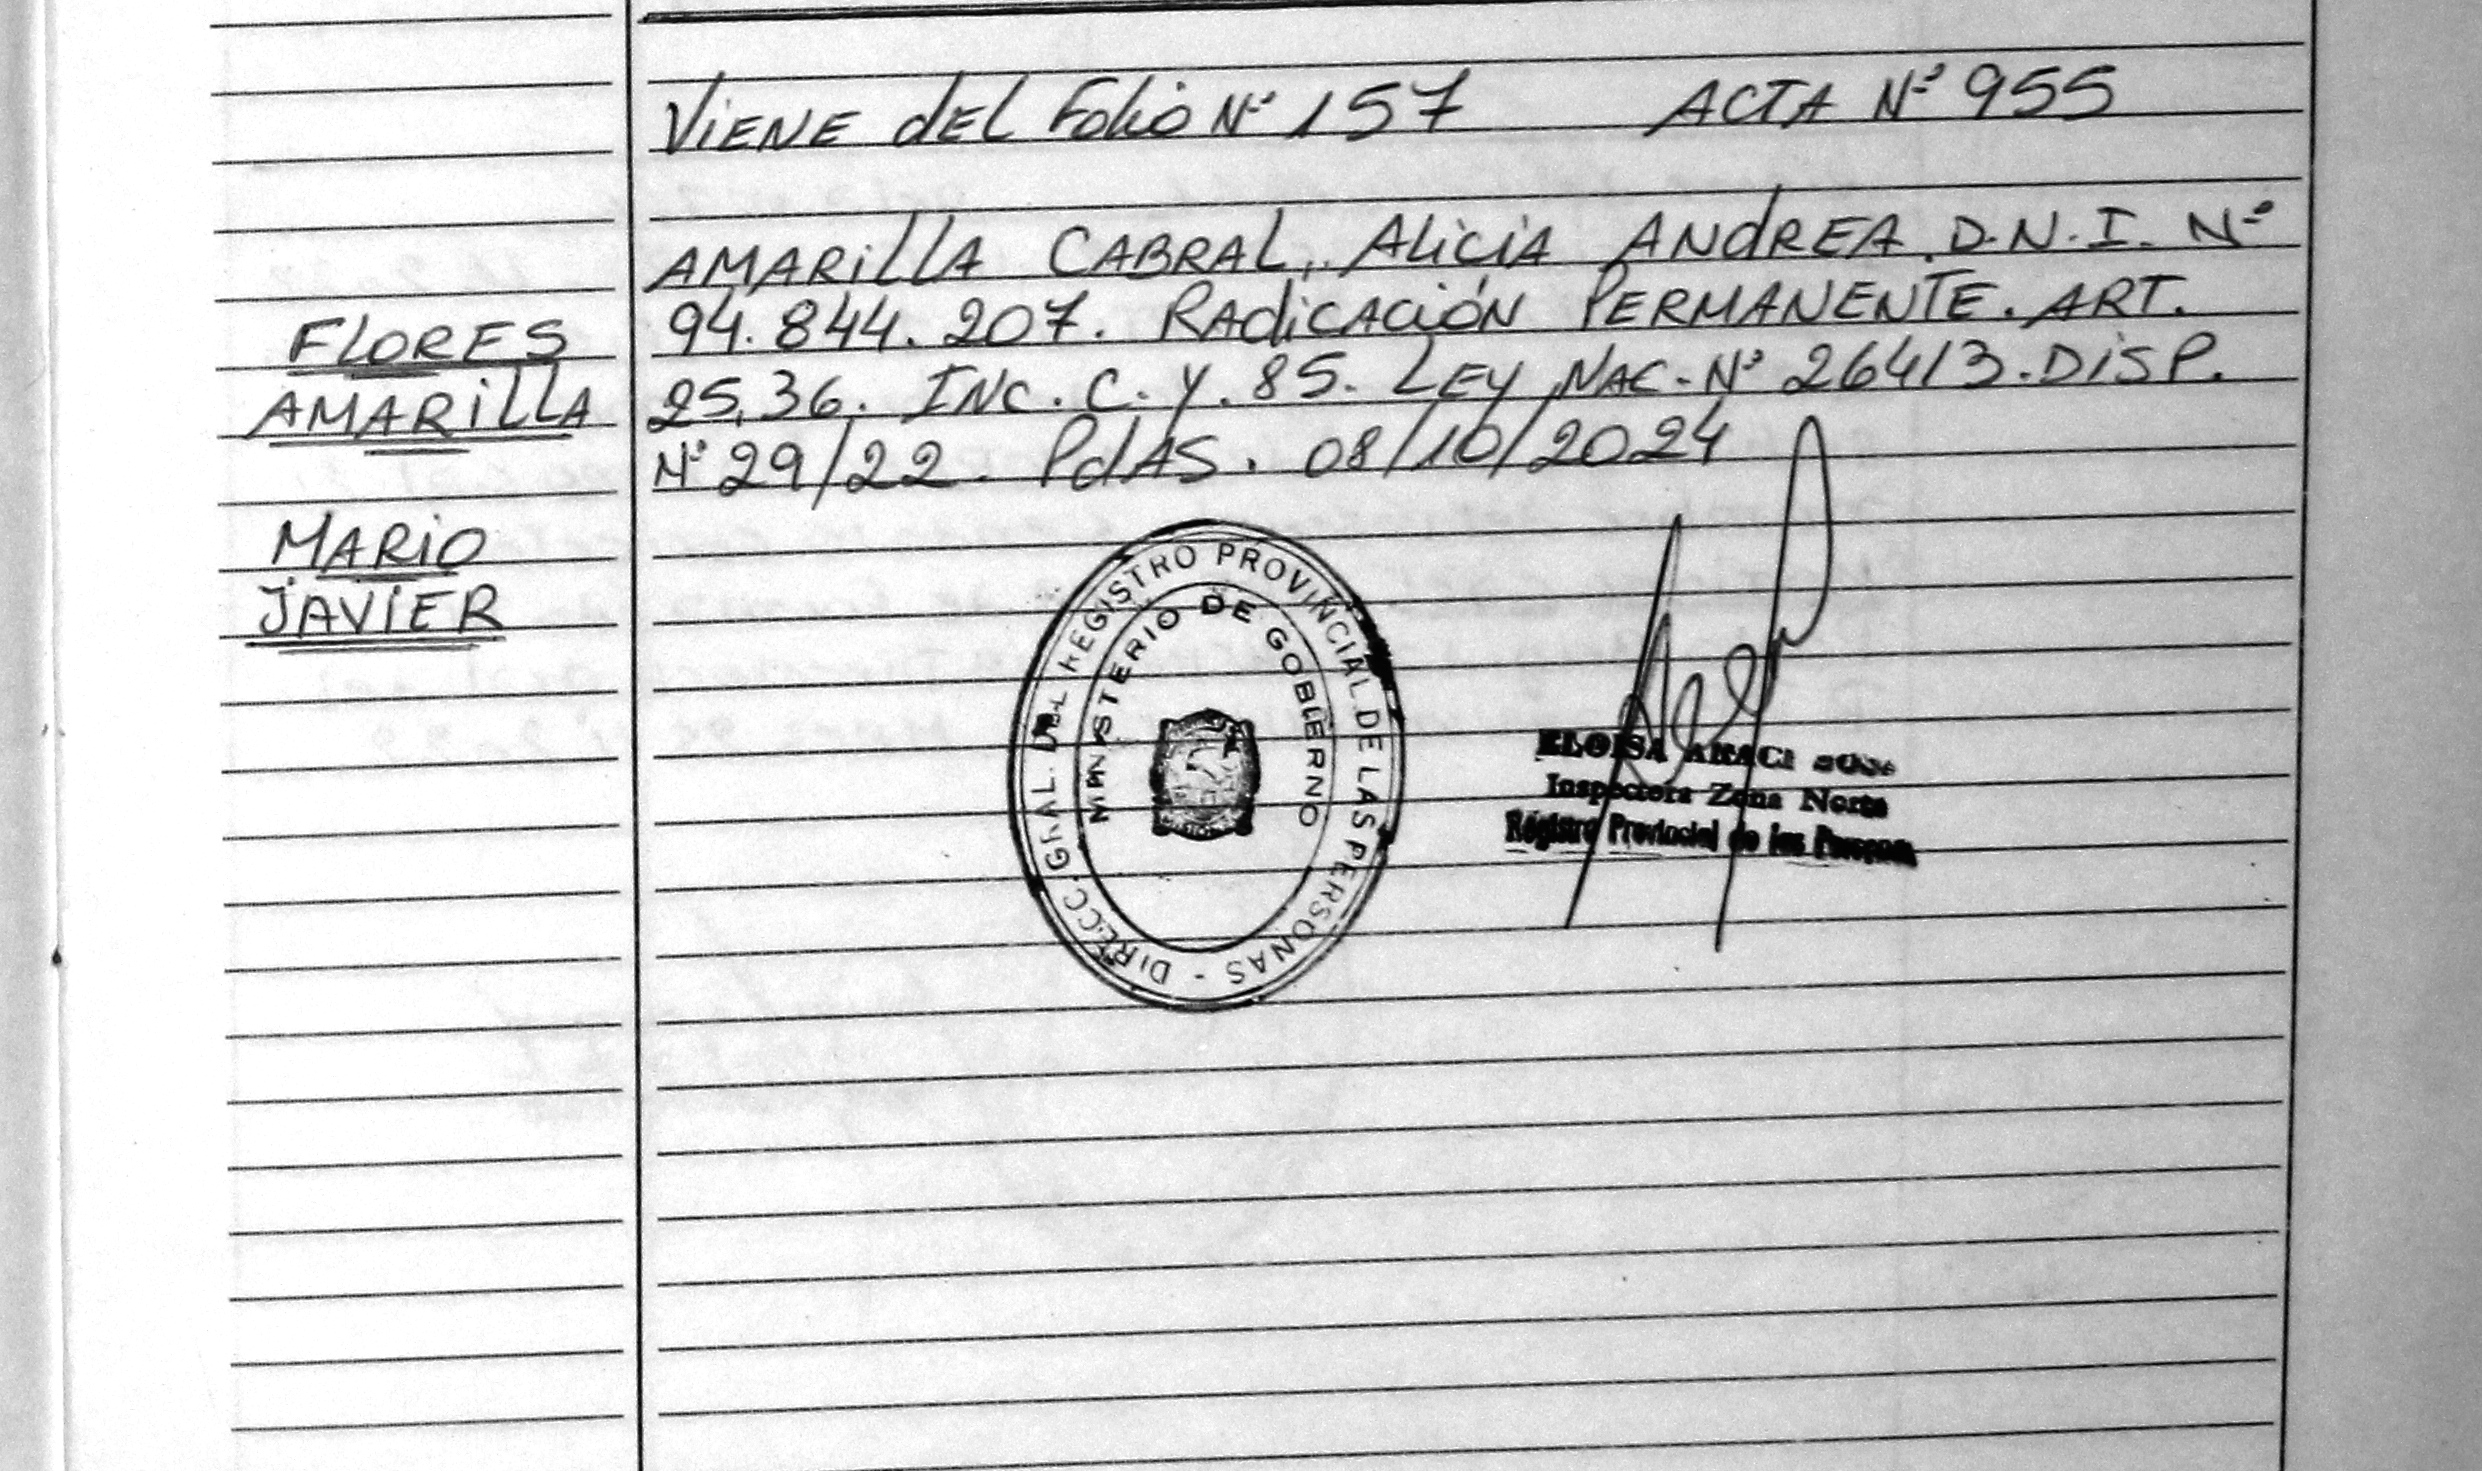 ViENE dEL Folio Nº 157 ACTA Nº 955
AMARiLLA CABRAL, ALiCiA ANdREA. D.N.I. Nº
94.844.207. RAdiCACiÓN PERMANENTE. ART.
25,36. INC. C. Y. 85. LEY NAC. Nº 26413. DiSP.
Nº 29/22. PdAS. 08/10/2024
FLORES
AMARiLLA
MARiO
JAVIER
DIRECC. GRAL. DEL REGISTRO PROVINCIAL DE LAS PERSONAS -
MINISTERIO DE GOBIERNO
ELOISA ARACI
Inspectora Zona Norte
Registro Provincial de las Personas